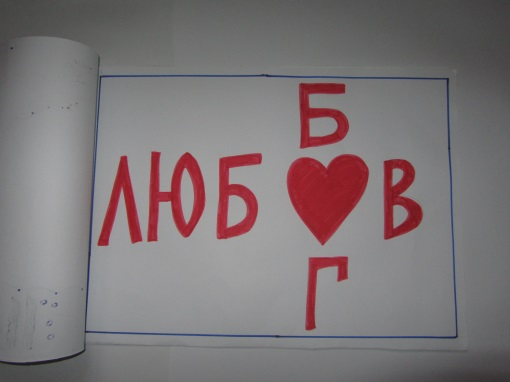 Б
ЛЮБ❤В
Г